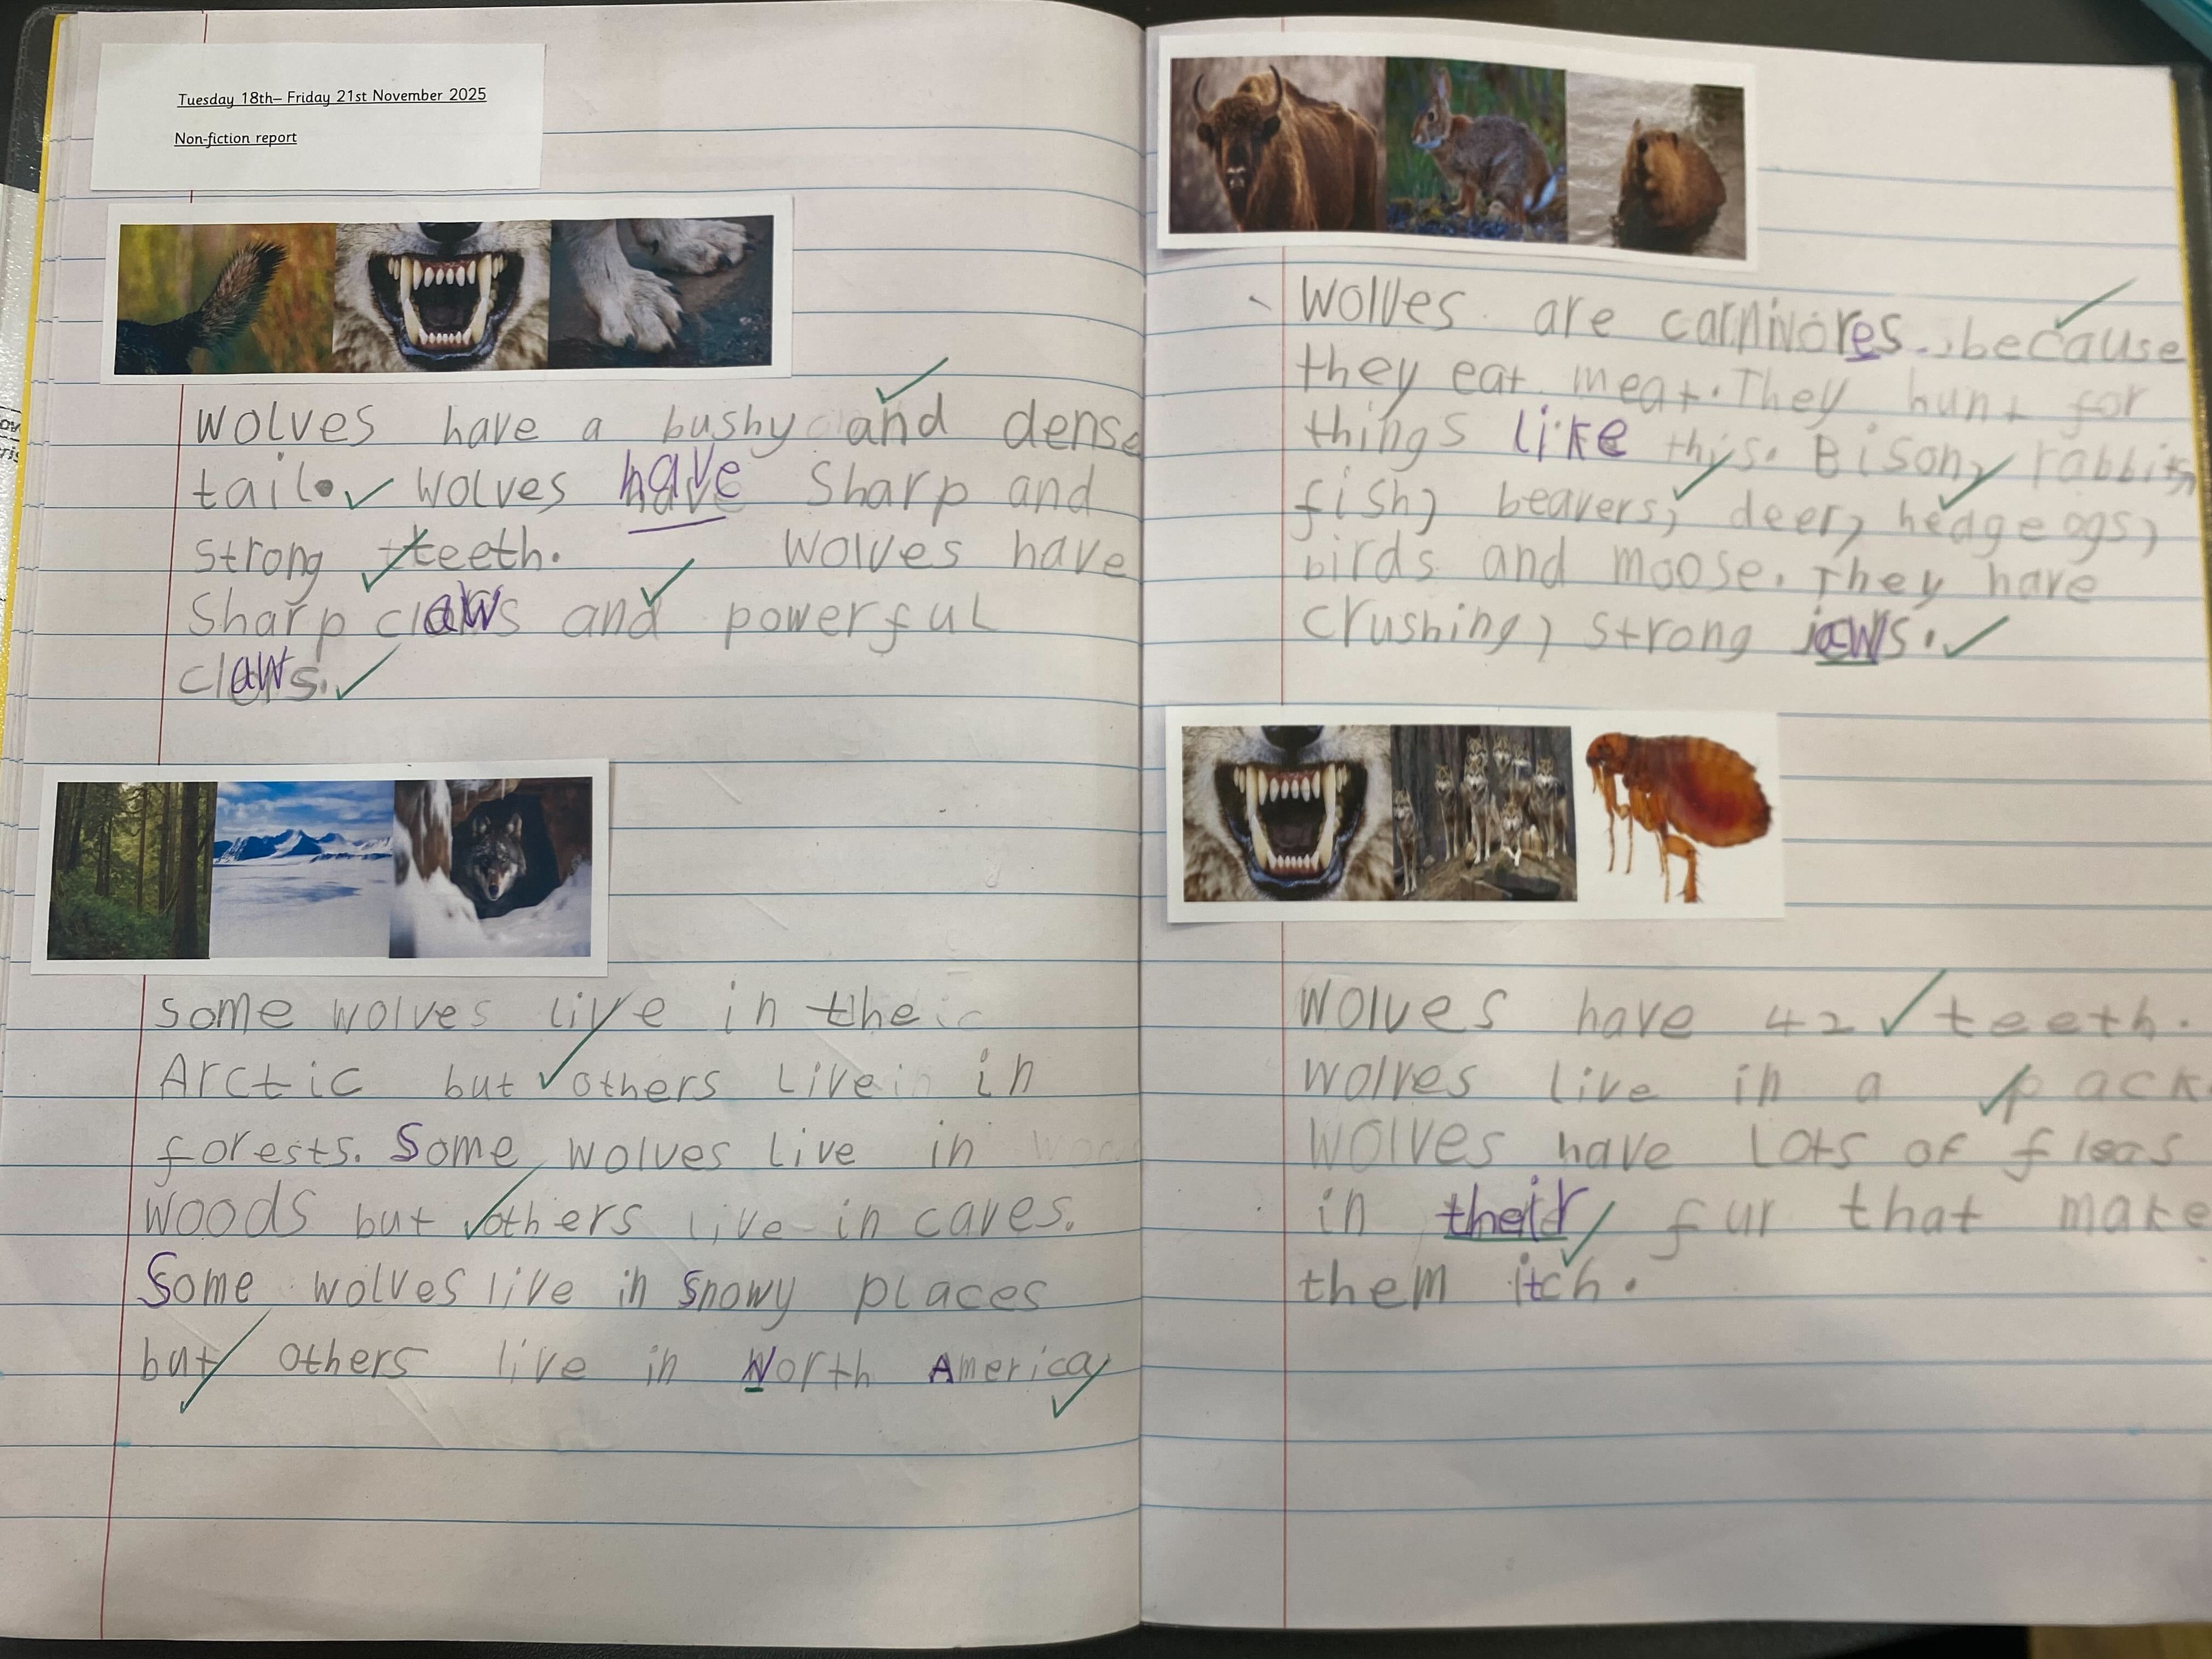 Tuesday 18th– Friday 21st November 2025
Non-fiction report
Wolves have a bushy and dense
tail. Wolves have Sharp and
strong teeth. Wolves have
Sharp claws and powerful
claws.
some wolves live in the
Arctic but others Live in
forests. Some wolves live in
woods but others live in caves.
Some wolves live in Snowy places
but others live in North America
Wolves are carnivores because
they eat meat. They hunt for
things like this. Bison, rabbits,
fish, beavers, deer, hedgeogs,
birds and moose. They have
crushing, strong jaws.
Wolves have 42 teeth.
Wolves live in a pack
Wolves have Lots of fleas
in their fur that make
them itch.